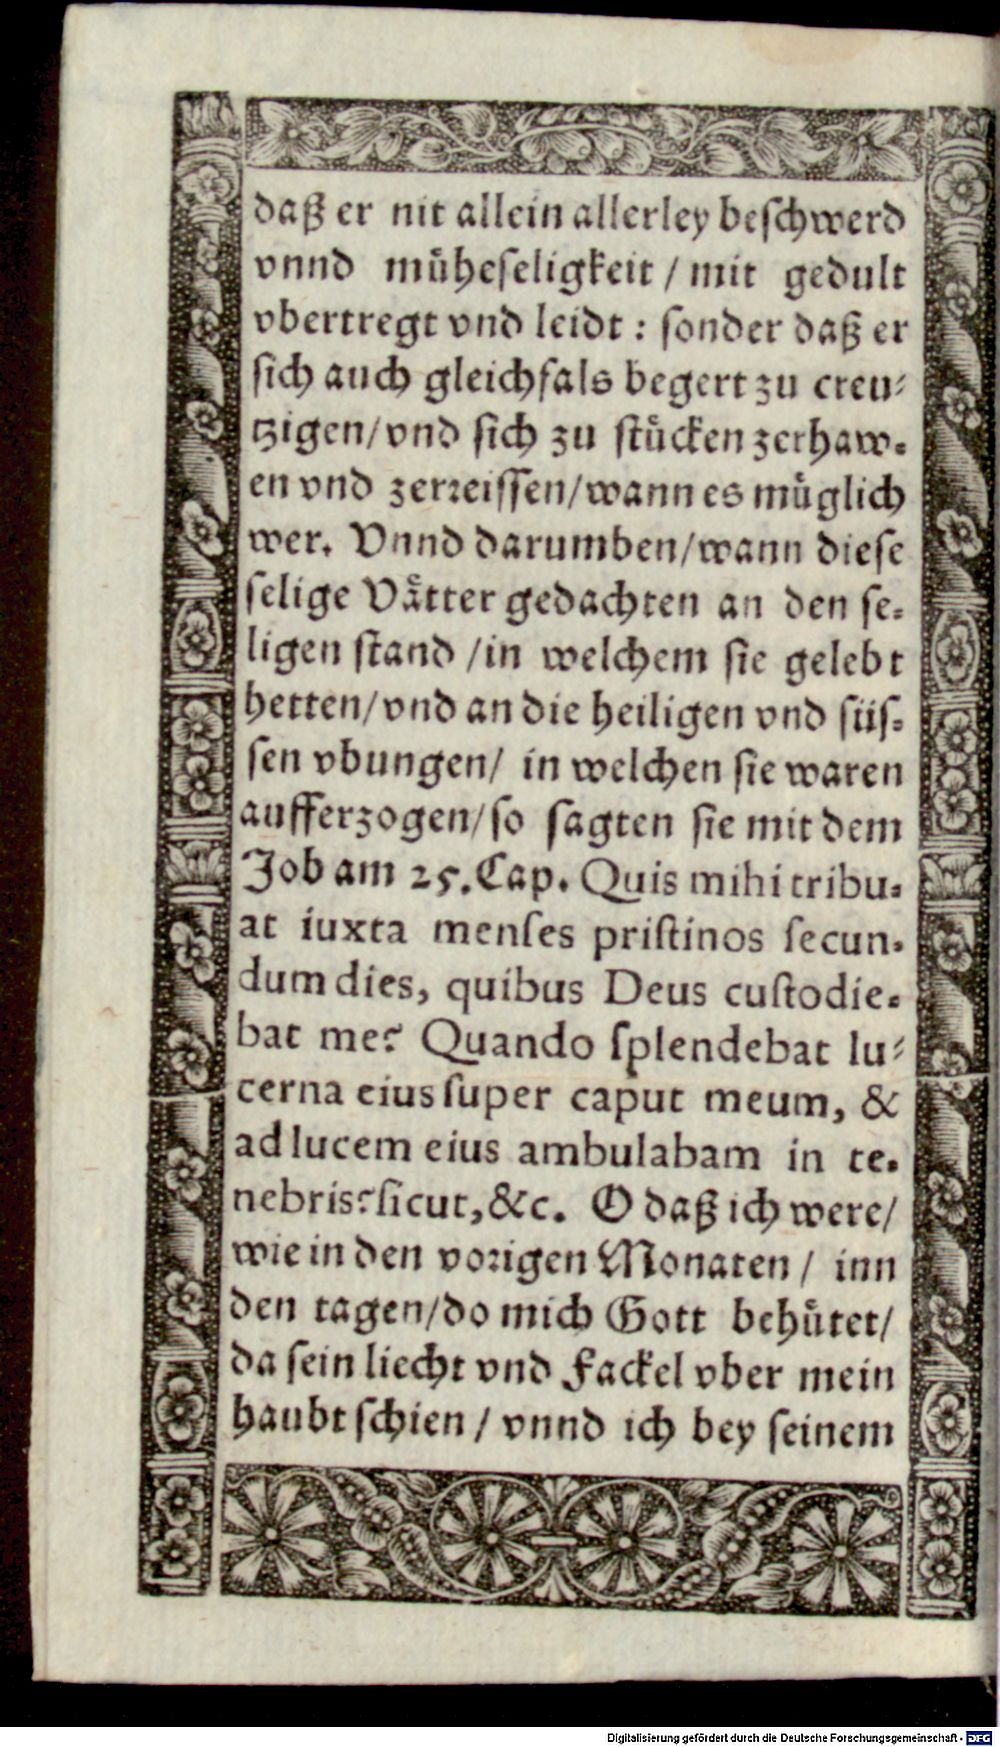 daß er nit allein allerley beschwerd
vnnd müheseligkeit / mit gedult
vbertregt vnd leidt : sonder daß er
sich auch gleichfals begert zu creu-
tzigen/vnd sich zu stücken zerhaw-
en vnd zerreissen/wann es müglich
wer. Vnnd darumben/wann diese
selige Vätter gedachten an den se-
ligen stand /in welchem sie gelebt
hetten/vnd an die heiligen vnd süs-
sen vbungen/ in welchen sie waren
aufferzogen/so sagten sie mit dem
Job am 25. Cap. Quis mihi tribu-
at iuxta menses pristinos secun-
dum dies, quibus Deus custodie-
bat me? Quando splendebat lu-
cerna eius super caput meum, &
ad lucem eius ambulabam in te-
nebris? sicut, &c. O daß ich were/
wie in den vorigen Monaten / inn
den tagen/do mich Gott behütet/
da sein liecht vnd Fackel vber mein
haubt schien / vnnd ich bey seinem
Digitalisierung gefördert durch die Deutsche Forschungsgemeinschaft - DFG